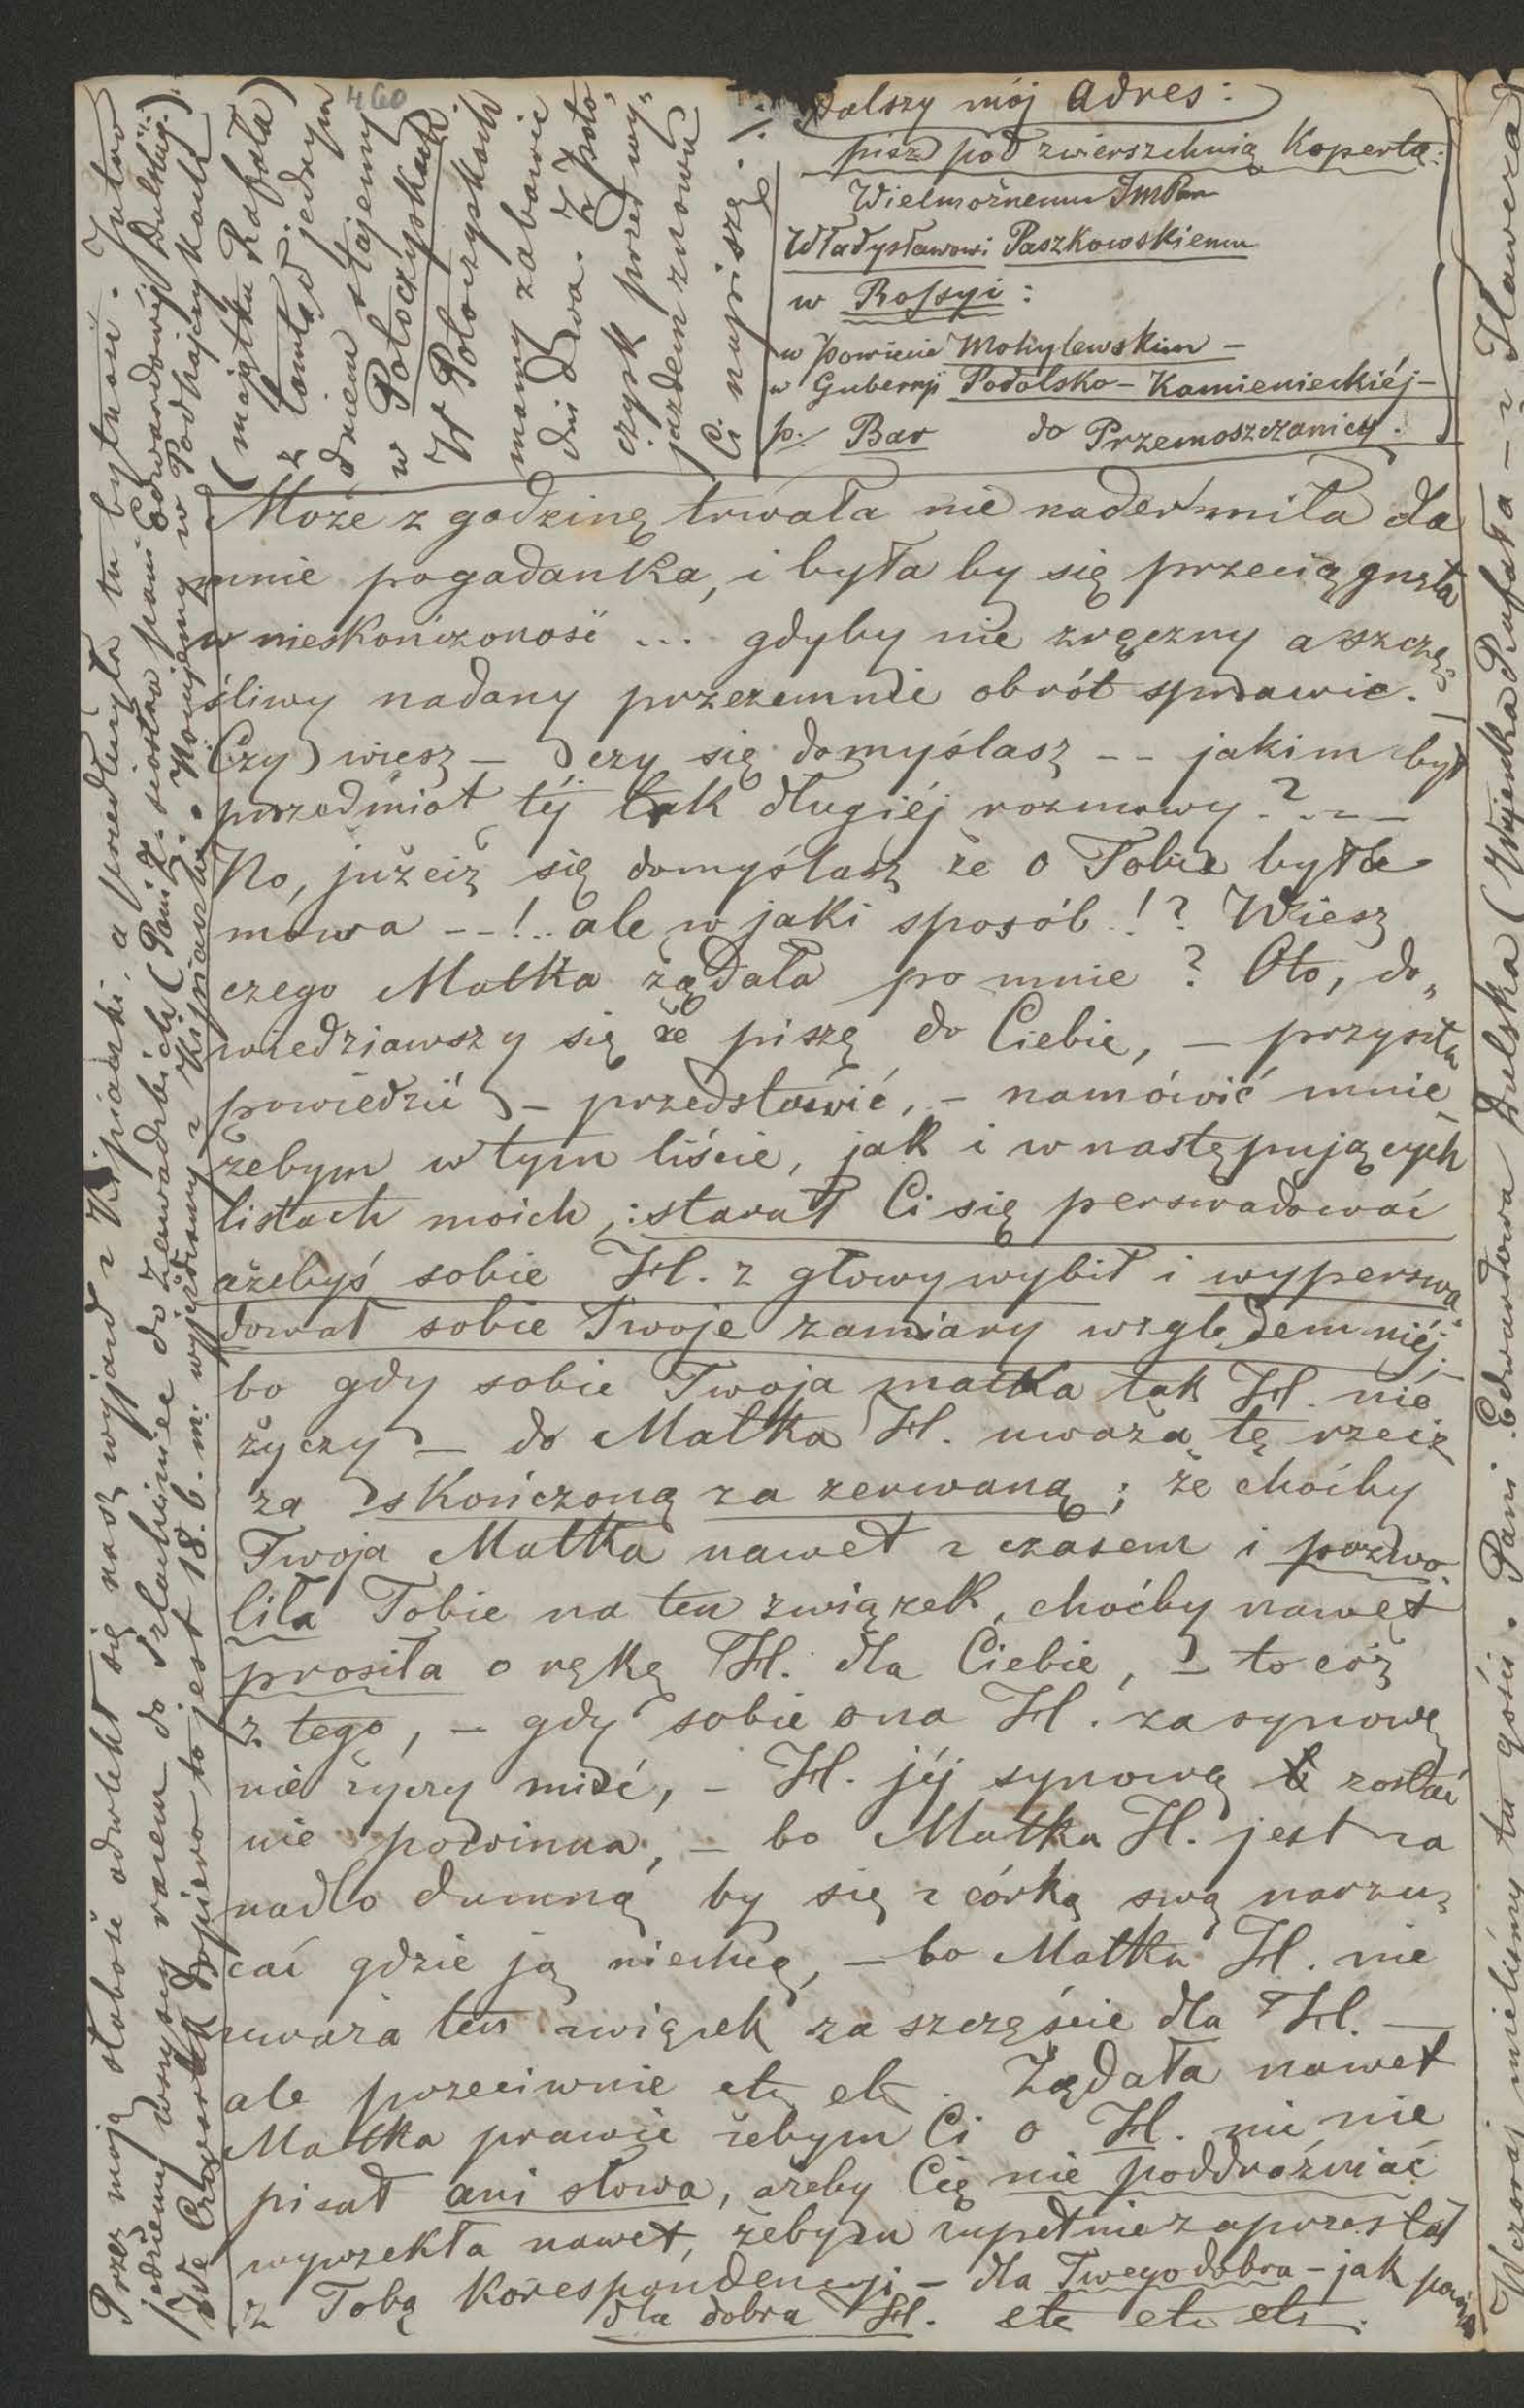 460
Dalszy mój Adres:
pisz pod zwierszchnią Kopertą:
Wielmożnemu JmPan
Władysławowi Paszkowskiemu
w Rossyi:
w Powiecie Mohylewskim –
w Gubernji Podolsko – Kamienieckiéj –
p. Bar do Przemoszczanicy.
Może z godzinę trwała nie nader miła dla
mnie pogadanka, i była by się przeciągnęła
w nieskończoność ... gdyby nie zręczny a szczę-
śliwy nadany przezemnie obrót sprawie.
Czy wiesz – czy się domyślasz -- jakim był
przedmiot téj tak długiéj rozmowy? ---
No, jużciż się domyślasz że o Tobie była
mowa --!.. ale w jaki sposób!? Wiesz
czego Matka żądała po mnie? Oto, do„
wiedziawszy się że piszę do Ciebie, – przyszła
powiedzić – przedstawić, – namówić mnie
żebym w tym liście, jak i w następujących
listach moich: starał Ci się perswadować
ażebyś sobie H. z głowy wybił i wyperswa„
dował sobie Twoje zamiary względem niéj. –
bo gdy sobie Twoja matka tak H. nie
życzy – to Matka H. uważa tę rzecz
za skończoną za zerwaną; że choćby
Twoja Matka nawet z czasem i pozwo„
liła Tobie na ten związek, choćby nawet
prosiła o rękę H. dla Ciebie, – to cóż
z tego, – gdy sobie ona H. za synowę
nie życzy mieć, – H. jéj synową zostać
nie powinna, – bo Matka H. jest za
nadto dumną by się z córką swą narzu„
cać gdzie ją niechcą, – bo Matka H. nie
uważa ten związek za szczęście dla H. –
ale przeciwnie etc etc. Żądała nawet
Matka prawie żebym Ci o H. nic nie
pisał ani słowa, ażeby Cię nie poddrażniać
wyrzekła nawet, żebym zupełnie zaprzestał
z Tobą korespondencyi – dla Twego dobra – jak
dla dobra H. etc etc etc.
(majątku Rafała)
z tamtąd jednym
dniem stajemy
w Potoczyskach
W Potoczyskach
mamy zabawić
dni dwa. Z Poto„
czysk przed wy„
jazdem znowu
Ci napiszę. /.
Przez moją słabość odwlekł się nasz wyjazd z Krpiaski, a przedłużyła tu bytność. Jutro
jedziemy wszyscy razem do Szlachciniec do Zawadzkich (Pani Z. siostra pani Edwardowéj Dulskiéj.)
We Czwartek dopiero to jest 18. b. m. wyjeżdżamy z Nocujemy w Podhajczykach
Wczoraj mieliśmy tu gości. Pani Edwardowa Dulska (Wujenka Rafała – z Iławcza)